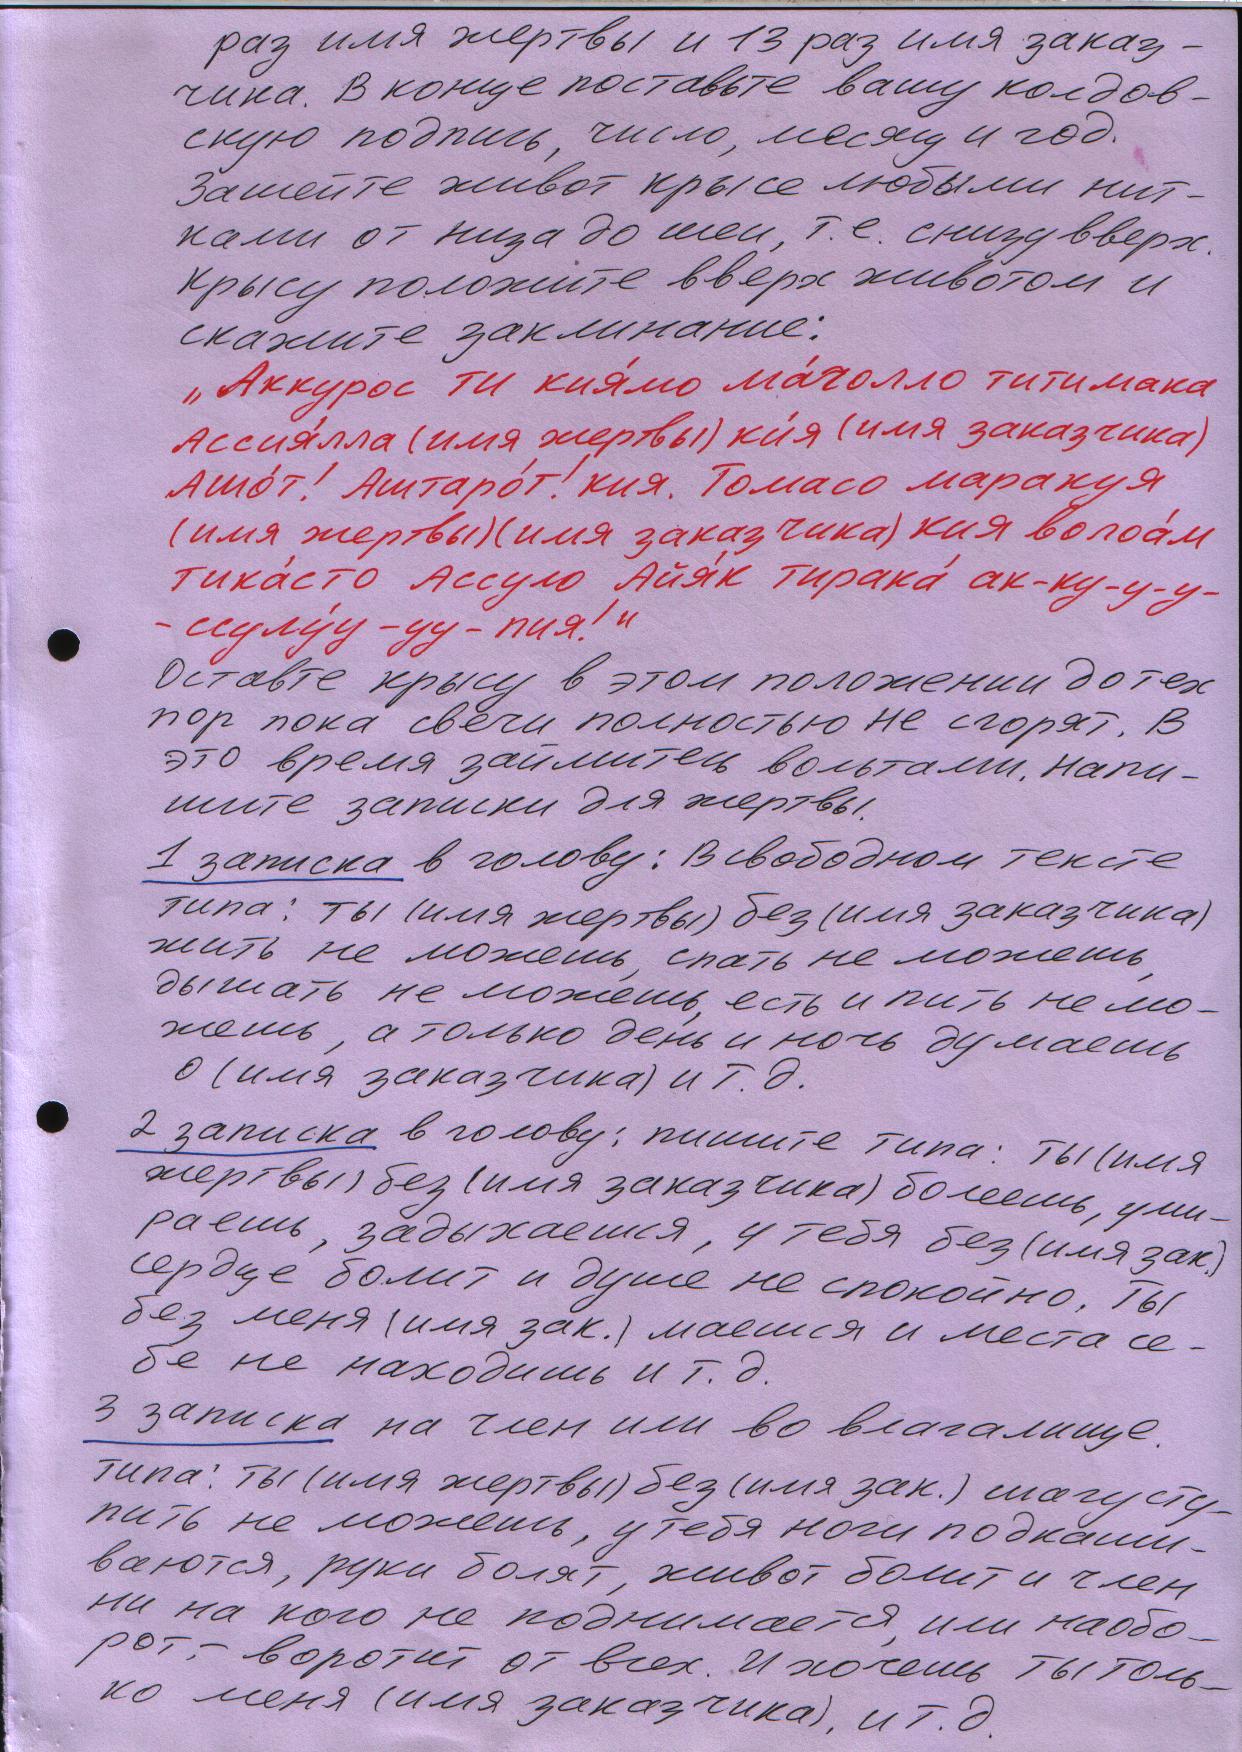 раз имя жертвы и 13 раз имя заказ-
чика. В конце поставьте вашу колдов-
скую подпись, число, месяц и год.
Зашейте живот крысе любыми нит-
ками от низа до шеи, т.е. снизу вверх.
Крысу положите вверх животом и
скажите заклинание:
„Аккурос ти кия́мо ма́чолло титимака
Ассия́лла (имя жертвы) ки́я (имя заказчика)
Ашо́т! Аштаро́т! кия. Томасо маракуя
(имя жертвы) (имя заказчика) кия волоа́м
тика́сто Ассуло Айя́к тирака́ ак-ку-у-у-
-ссулу́у-уу-пия!"
Оставте крысу в этом положении до тех
пор пока свечи полностью не сгорят. В
это время займитесь вольтами. Напи-
шите записки для жертвы.
1 записка в голову: В свободном тексте
типа: ты (имя жертвы) без (имя заказчика)
жить не можешь, спать не можешь,
дышать не можешь, есть и пить не мо-
жешь, а только день и ночь думаешь
о (имя заказчика) и т.д.
2 записка в голову: пишите типа: ты (имя
жертвы) без (имя заказчика) болеешь, уми-
раешь, задыхаешся, у тебя без (имя зак.)
сердце болит и душе не спокойно. Ты
без меня (имя зак.) маешся и места се-
бе не находишь и т.д.
3 записка на член или во влагалище.
типа: ты (имя жертвы) без (имя зак.) шагу сту-
пить не можешь, у тебя ноги подкаши-
ваются, руки болят, живот болит и член
ни на кого не поднимается, или наобо-
рот,- воротит от всех. И хочешь ты толь-
ко меня (имя заказчика), и т.д.